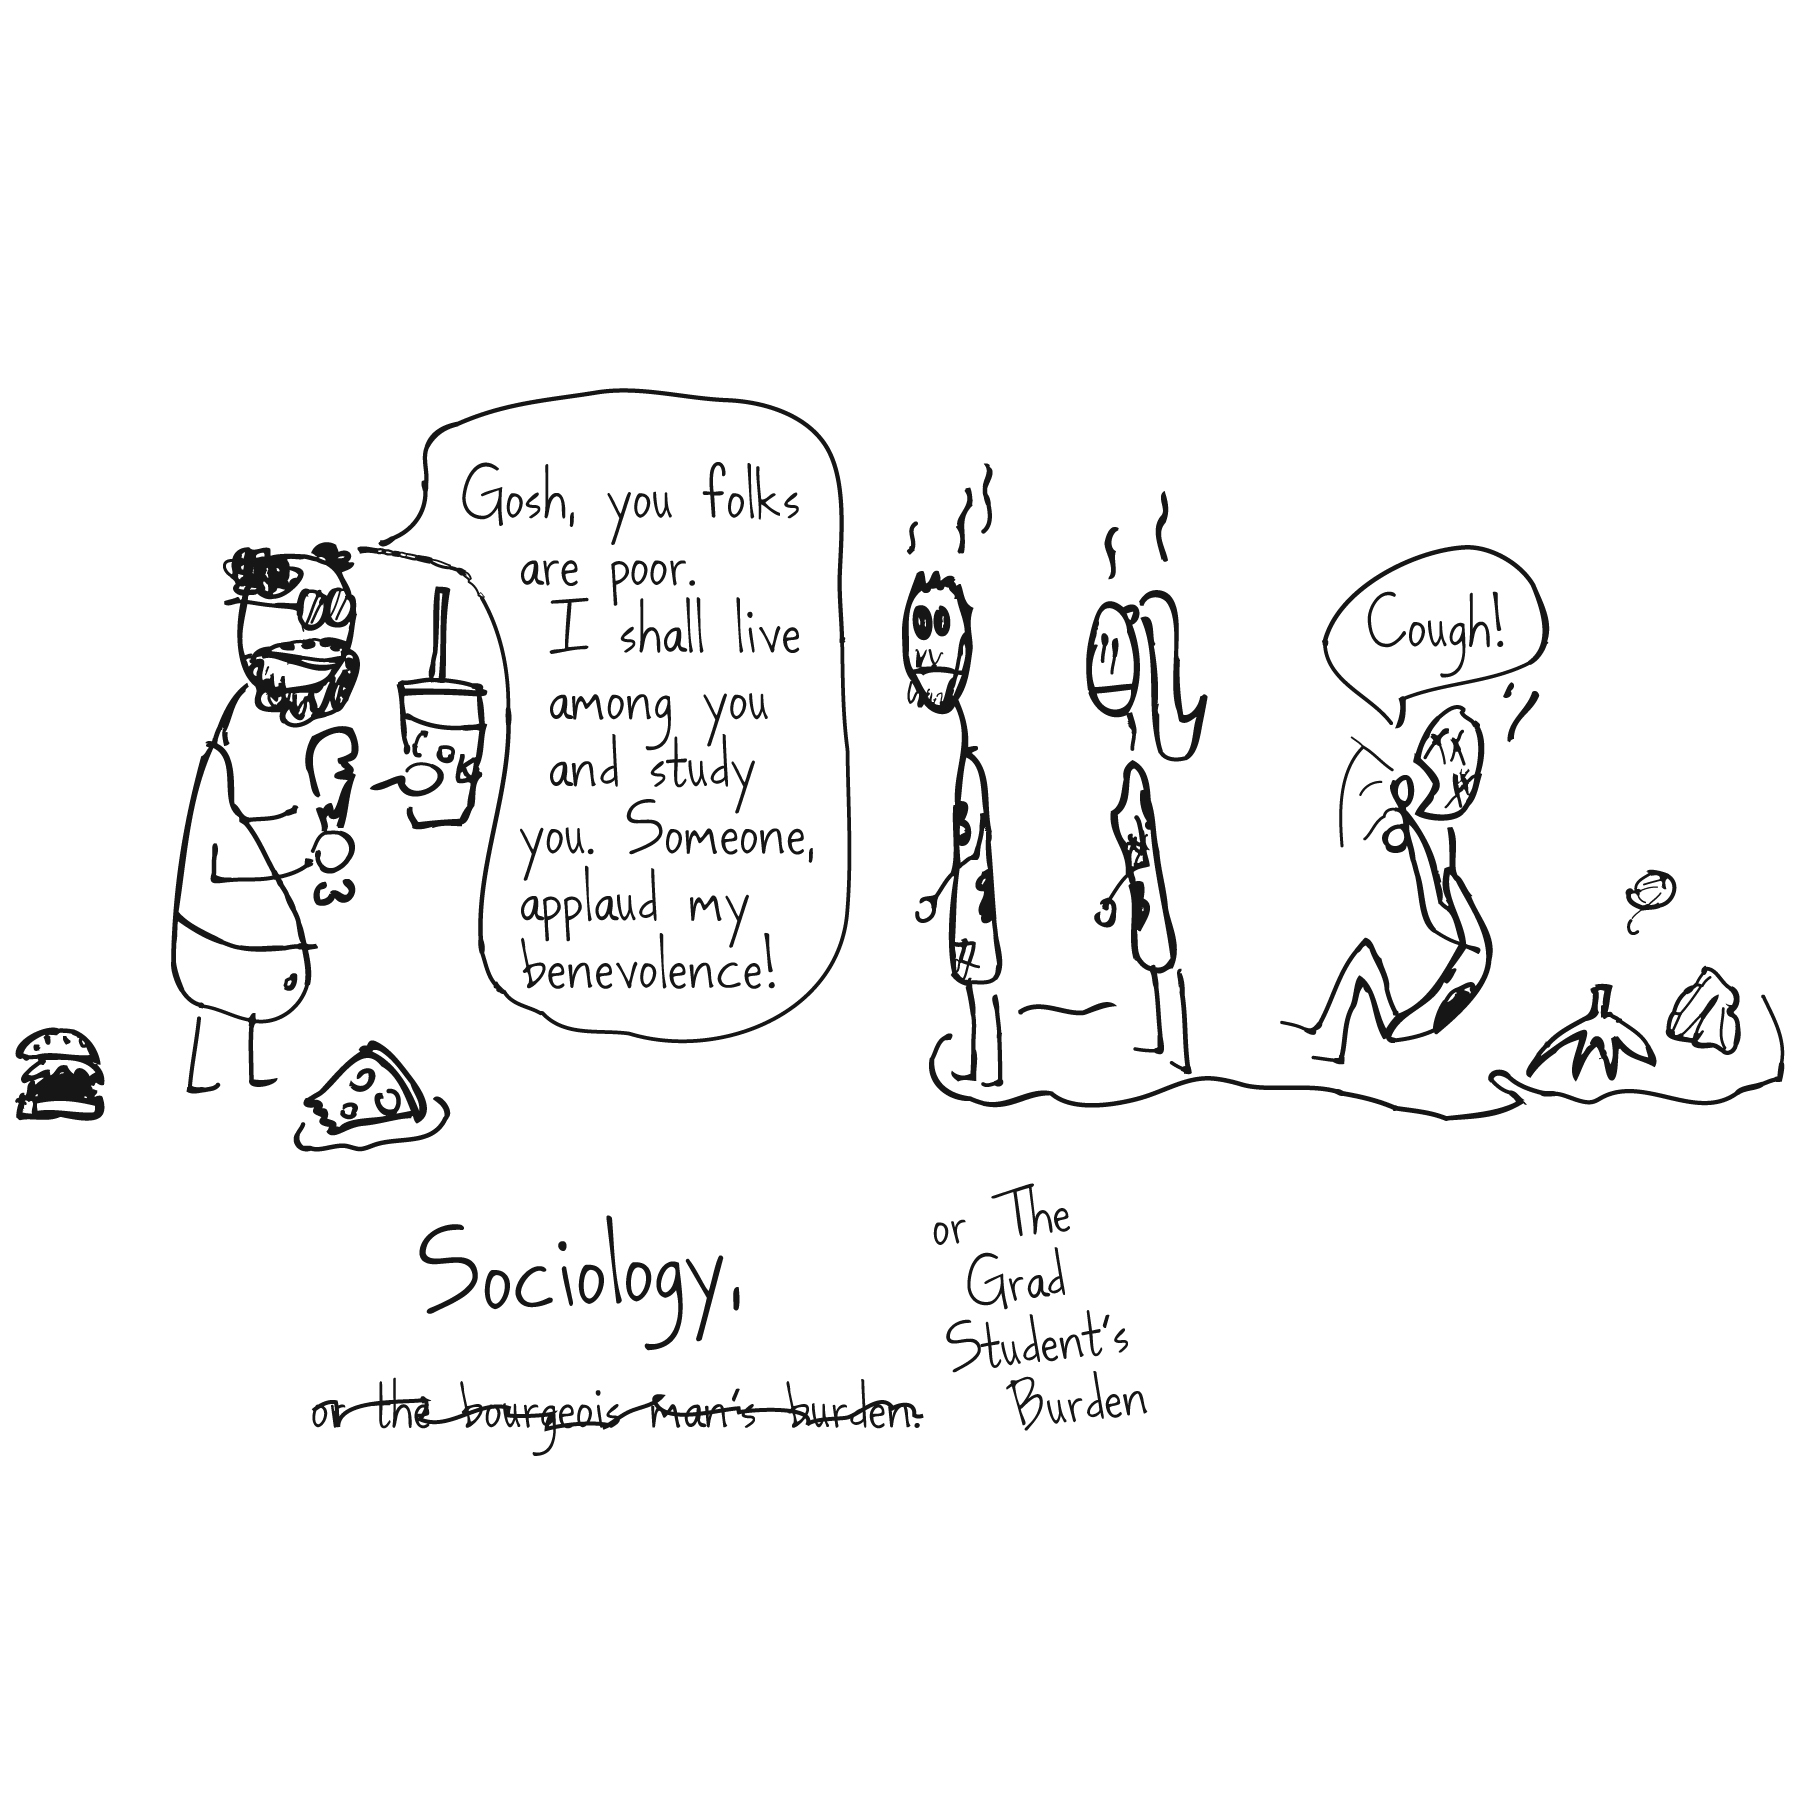 Gosh, you folks
are poor.
I shall live
among you
and study
you. Someone,
applaud my
benevolence!
Cough!
Sociology,
or the bourgeois man's burden.
or The
Grad
Student's
Burden